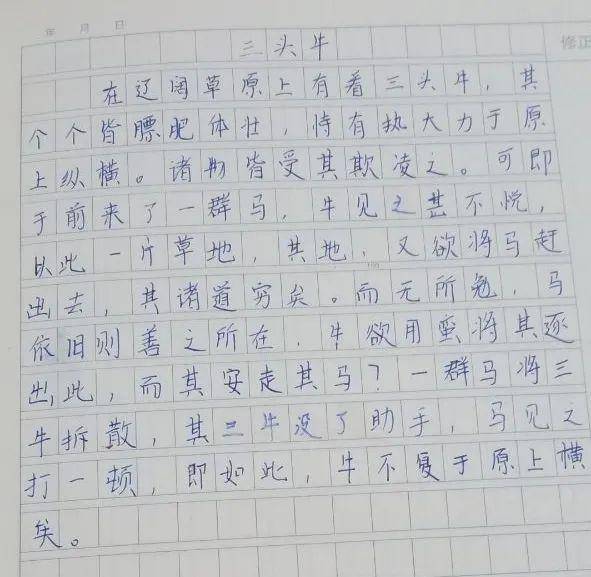 年 月 日
修正
三头牛
在辽阔草原上有着三头牛，其
个个皆膘肥体壮，恃有执大力于原
上纵横。诸物皆受其欺凌之。可即
于前来了一群马，牛见之甚不悦，
以此一片草地，其地，又欲将马赶
出去，其诸道穷矣。而无所勉，马
依旧则善之所在，牛欲用蛮将其逐
出此，而其安走其马？一群马将三
牛拆散，其三牛没了助手，马见之
打一顿，即如此，牛不复于原上横
矣。